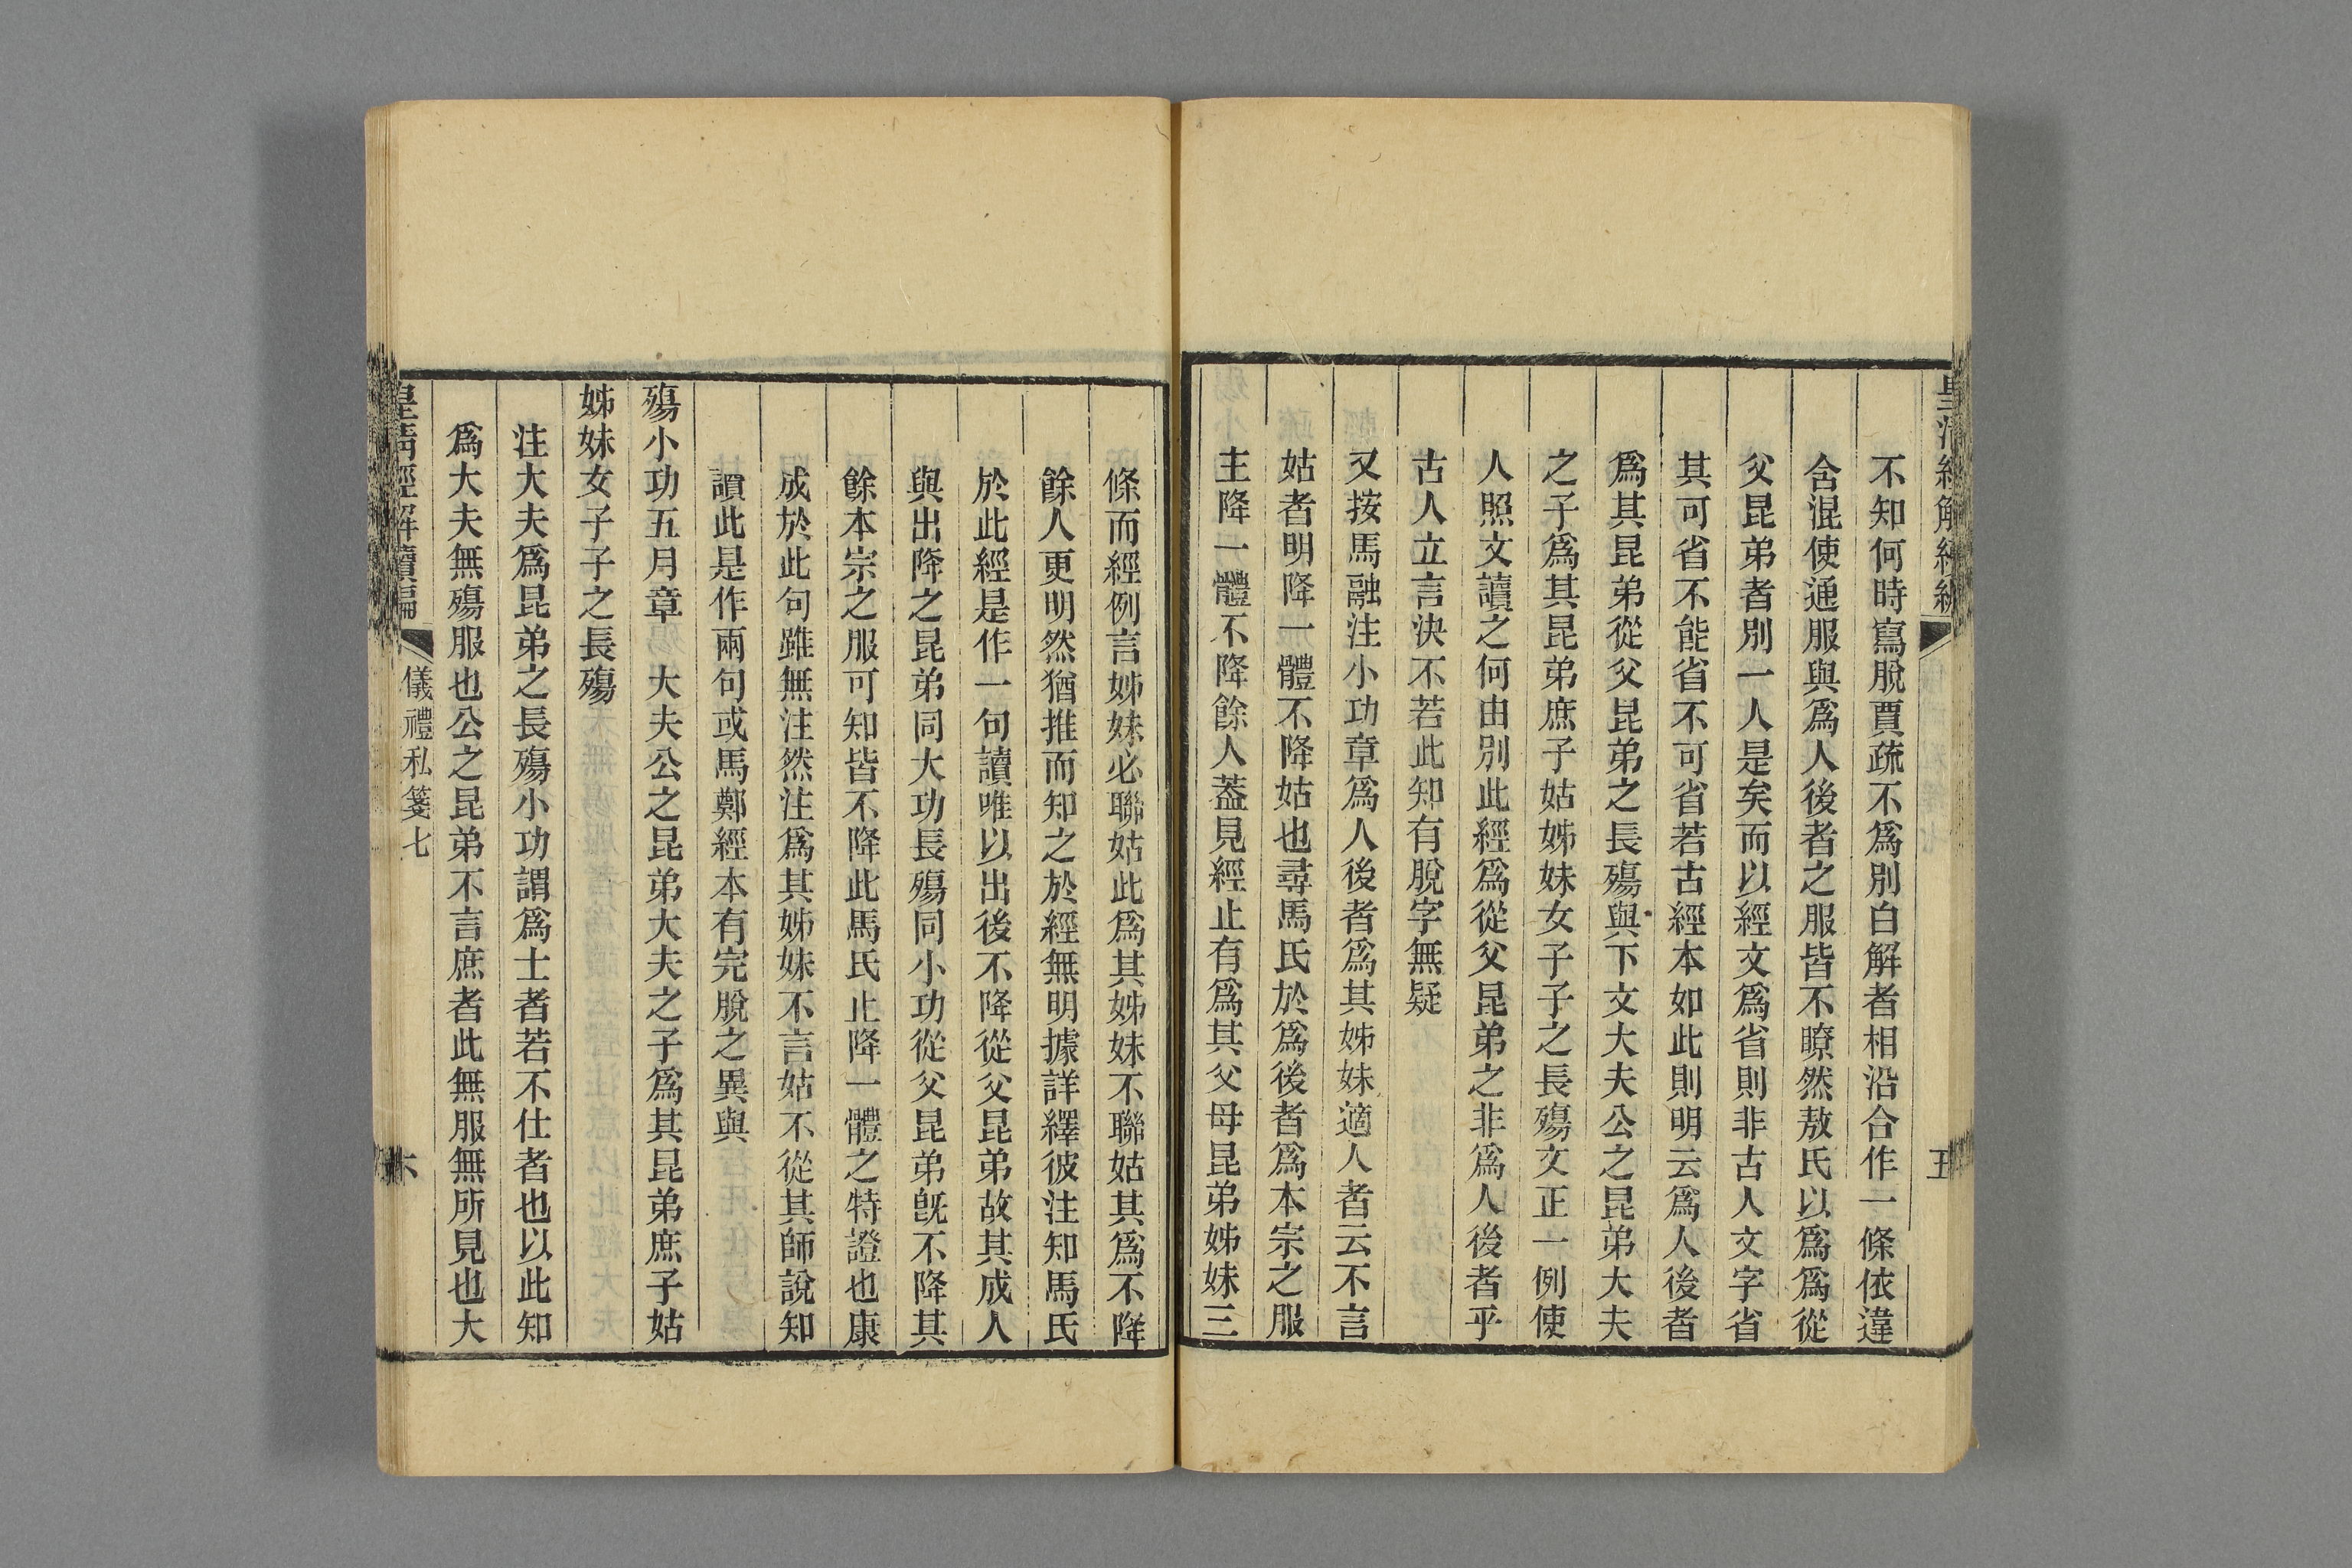 不知何時寫脫賈疏不爲別白解者相沿合作一條依違
含混使通服與爲人後者之服皆不瞭然敖氏以爲爲從
父昆弟者別一人是矣而以經文爲省則非古人文字省
其可省不能省不可省若古經本如此則明云爲人後者
爲其昆弟從父昆弟之長殤與下文大夫公之昆弟大夫
之子爲其昆弟庶子姑姊妹女子子之長殤文正一例使
人照文讀之何由別此經爲從父昆弟之非爲人後者乎
古人立言決不若此知有脫字無疑
又按馬融注小功章爲人後者爲其姊妹適人者云不言
姑者明降一體不降姑也尋馬氏於爲後者爲本宗之服
主降一體不降餘人葢見經止有爲其父母昆弟姊妹三
條而經例言姊妹必聯姑此爲其姊妹不聯姑其爲不降
餘人更明然猶推而知之於經無明據詳繹彼注知馬氏
於此經是作一句讀唯以出後不降從父昆弟故其成人
與出降之昆弟同大功長殤同小功從父昆弟旣不降其
餘本宗之服可知皆不降此馬氏止降一體之特證也康
成於此句雖無注然注爲其姊妹不言姑不從其師說知
讀此是作兩句或馬鄭經本有完脫之異與
殤小功五月章　大夫公之昆弟大夫之子爲其昆弟庶子姑
姊妹女子子之長殤
注大夫爲昆弟之長殤小功謂爲士者若不仕者也以此知
爲大夫無殤服也公之昆弟不言庶者此無服無所見也大
皇清經解續編　儀禮私箋七　六